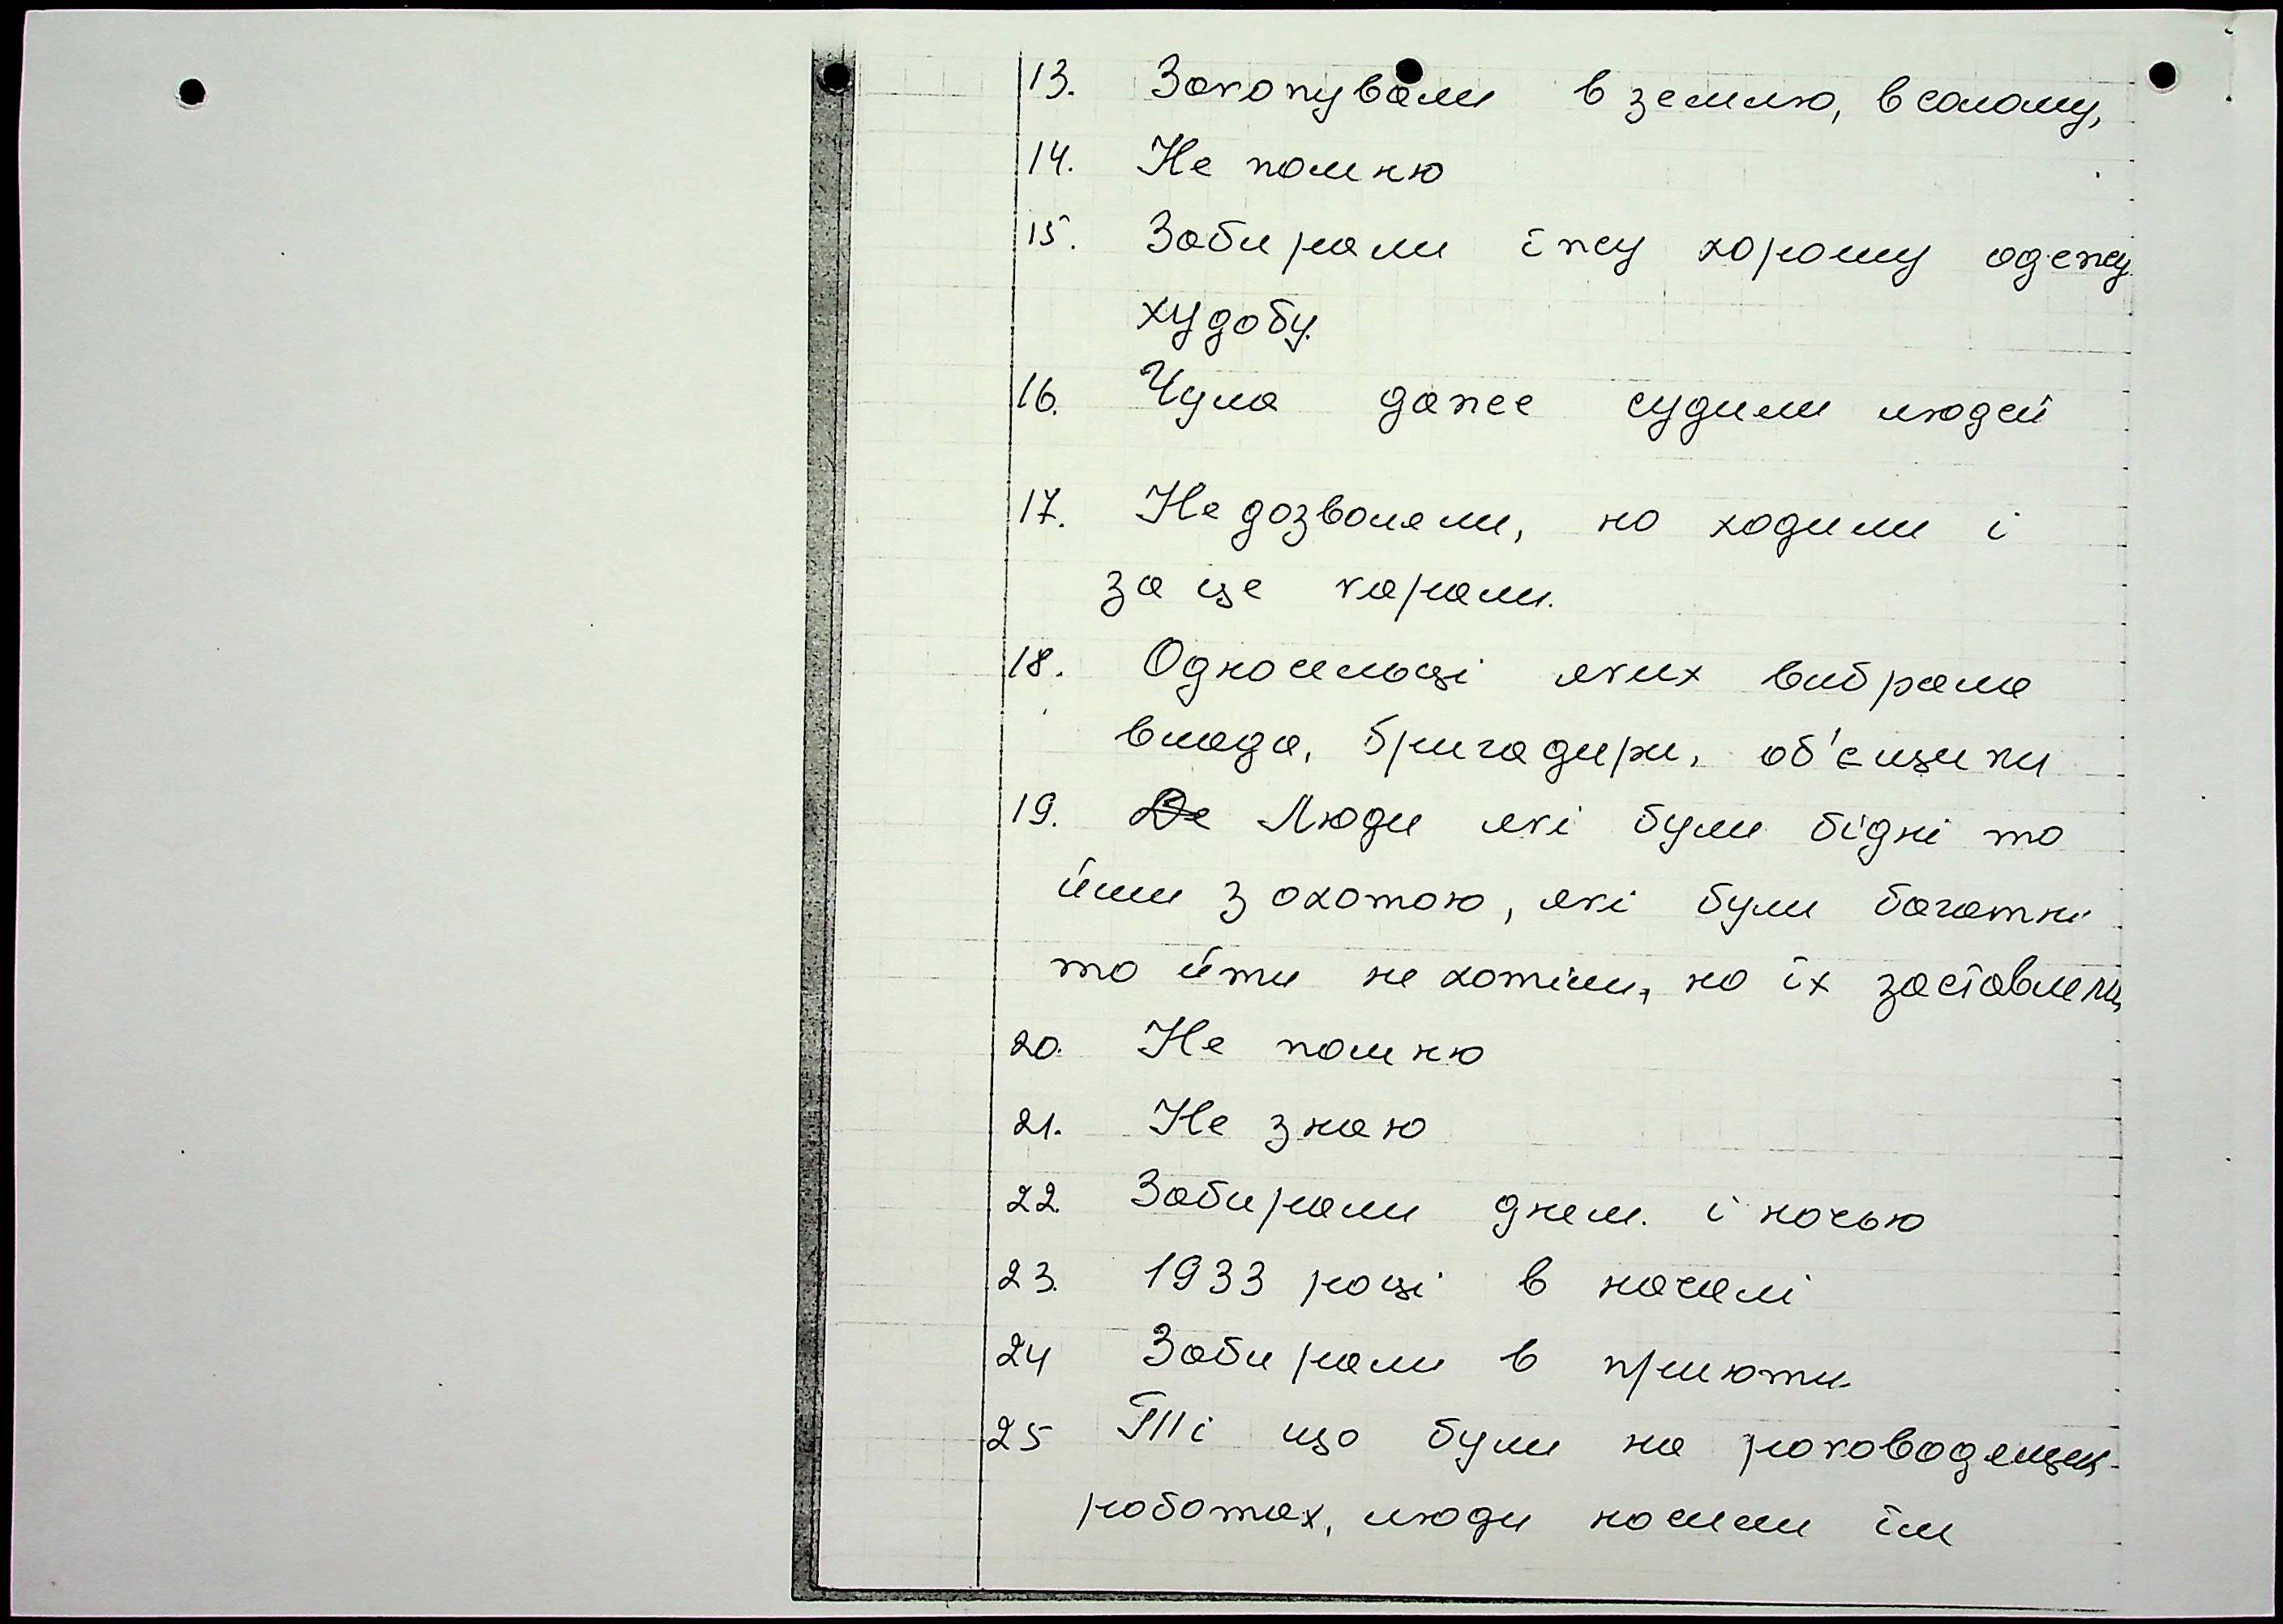 13. Закопували в землю, в солому,
14. Не помню
15. Забирали їжу хорошу одежу
худобу.
16. Чула даже судили людей
17. Не дозволяли, но ходили і
за це карали.
18. Односельці яких вибрала
влада, бригадири, об'єщики
19. Де Люди які були бідні то
йшли з охотою, які були багатні
то йти не хотіли, но їх заставляли
20. Не помню
21. Не знаю
22. Забирали днем. і ночью
23. 1933 році в началі
24 Забирали в приюти
25 Ті що були на роководящих
роботах, люди носили їм